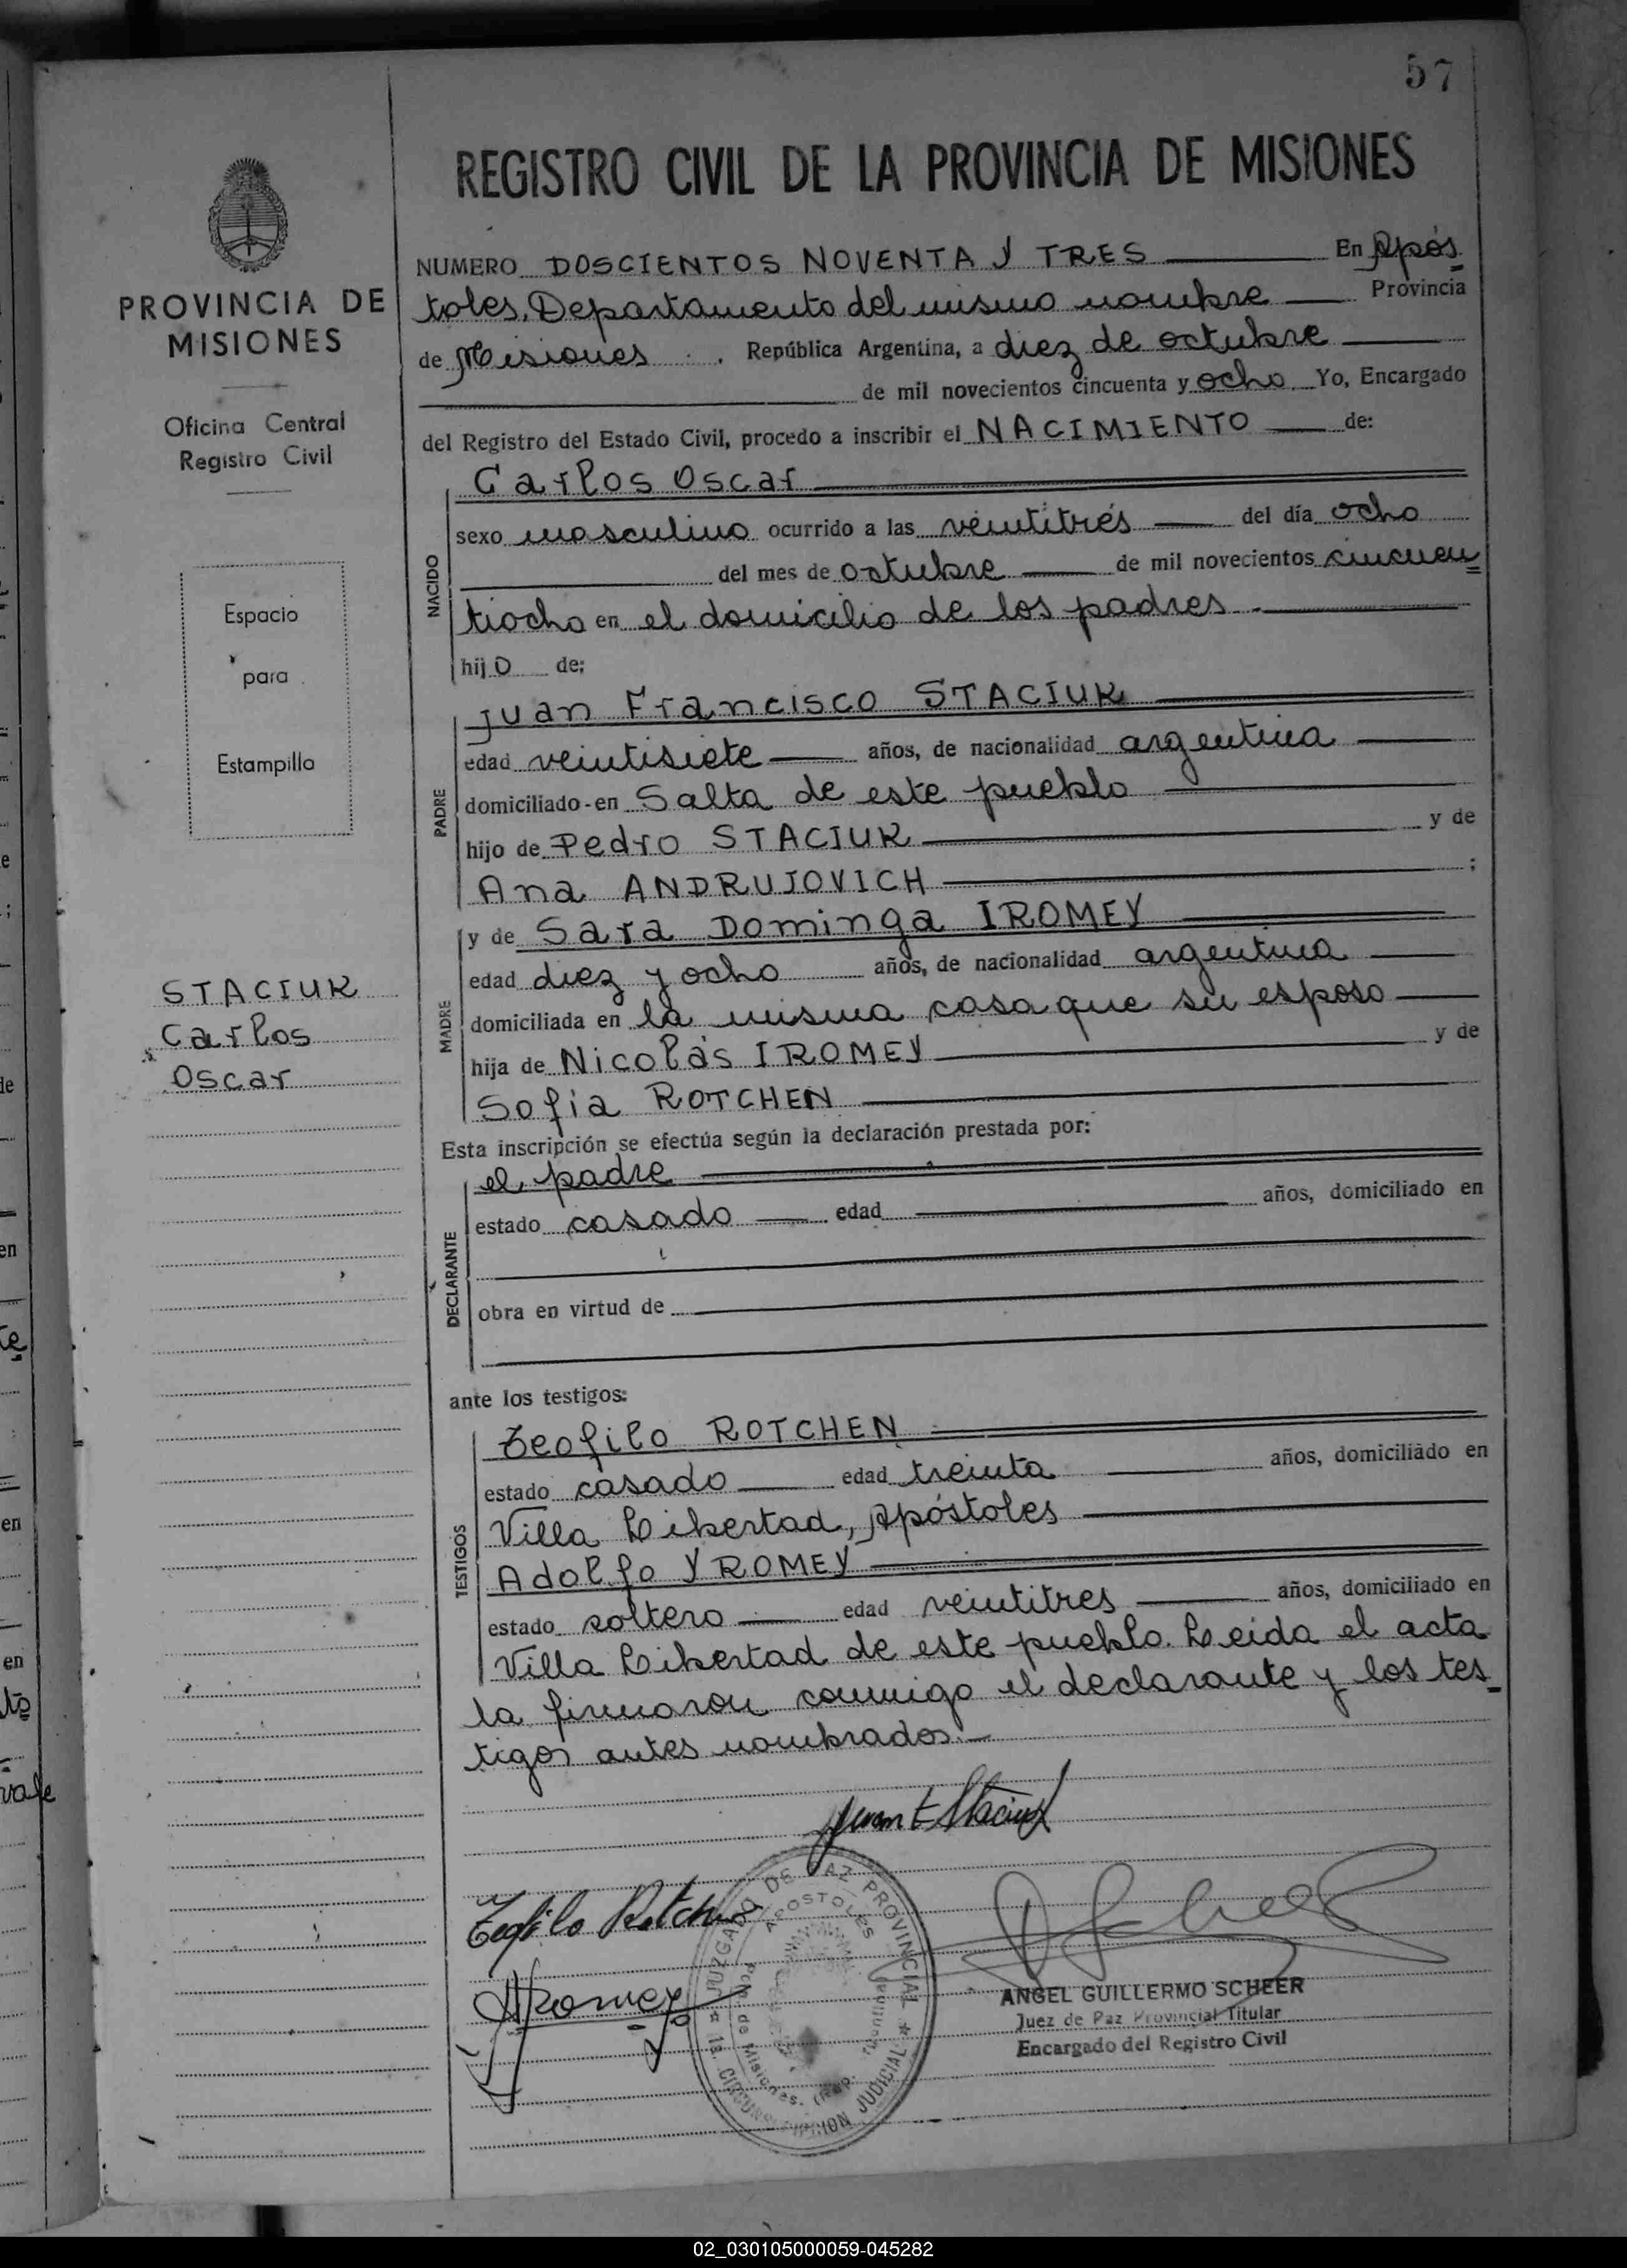 57
REGISTRO CIVIL DE LA PROVINCIA DE MISIONES
PROVINCIA DE
MISIONES
Oficina Central
Registro Civil
Espacio
para
Estampilla
STACIUK
Carlos
Oscar
NUMERO DOSCIENTOS NOVENTA Y TRES En Após
toles, Departamento del mismo nombre Provincia
de Misiones, República Argentina, a diez de octubre
de mil novecientos cincuenta y ocho Yo, Encargado
del Registro del Estado Civil, procedo a inscribir el NACIMIENTO de:
NACIDO
Carlos Oscar
sexo masculino ocurrido a las veintitrés del día ocho
del mes de octubre de mil novecientos cincuen
tiocho en el domicilio de los padres.
hijo de:
PADRE
Juan Francisco STACIUK
edad veintisiete años, de nacionalidad argentina
domiciliado en Salta de este pueblo
hijo de Pedro STACIUK y de
Ana ANDRUJOVICH ;
MADRE
y de Sara Dominga IROMEY
edad diez y ocho años, de nacionalidad argentina
domiciliada en la misma casa que su esposo
hija de Nicolás IROMEY y de
Sofia ROTCHEN
Esta inscripción se efectúa según la declaración prestada por:
DECLARANTE
el padre
estado casado edad años, domiciliado en
obra en virtud de
ante los testigos:
TESTIGOS
Teofilo ROTCHEN
estado casado edad treinta años, domiciliado en
Villa Libertad, Apóstoles
Adolfo YROMEY
estado soltero edad veintitres años, domiciliado en
Villa Libertad de este pueblo. Leida el acta
la firmaron conmigo el declarante y los tes-
tigos antes nombrados.-
Juan F Staciuk
Teofilo Rotchen
AYromey
JUZGADO DE PAZ PROVINCIAL
APOSTOLES
1a. CIRCUNSCRIPCION JUDICIAL
ANGEL GUILLERMO SCHEER
Juez de Paz Provincial Titular
Encargado del Registro Civil
02_030105000059-045282